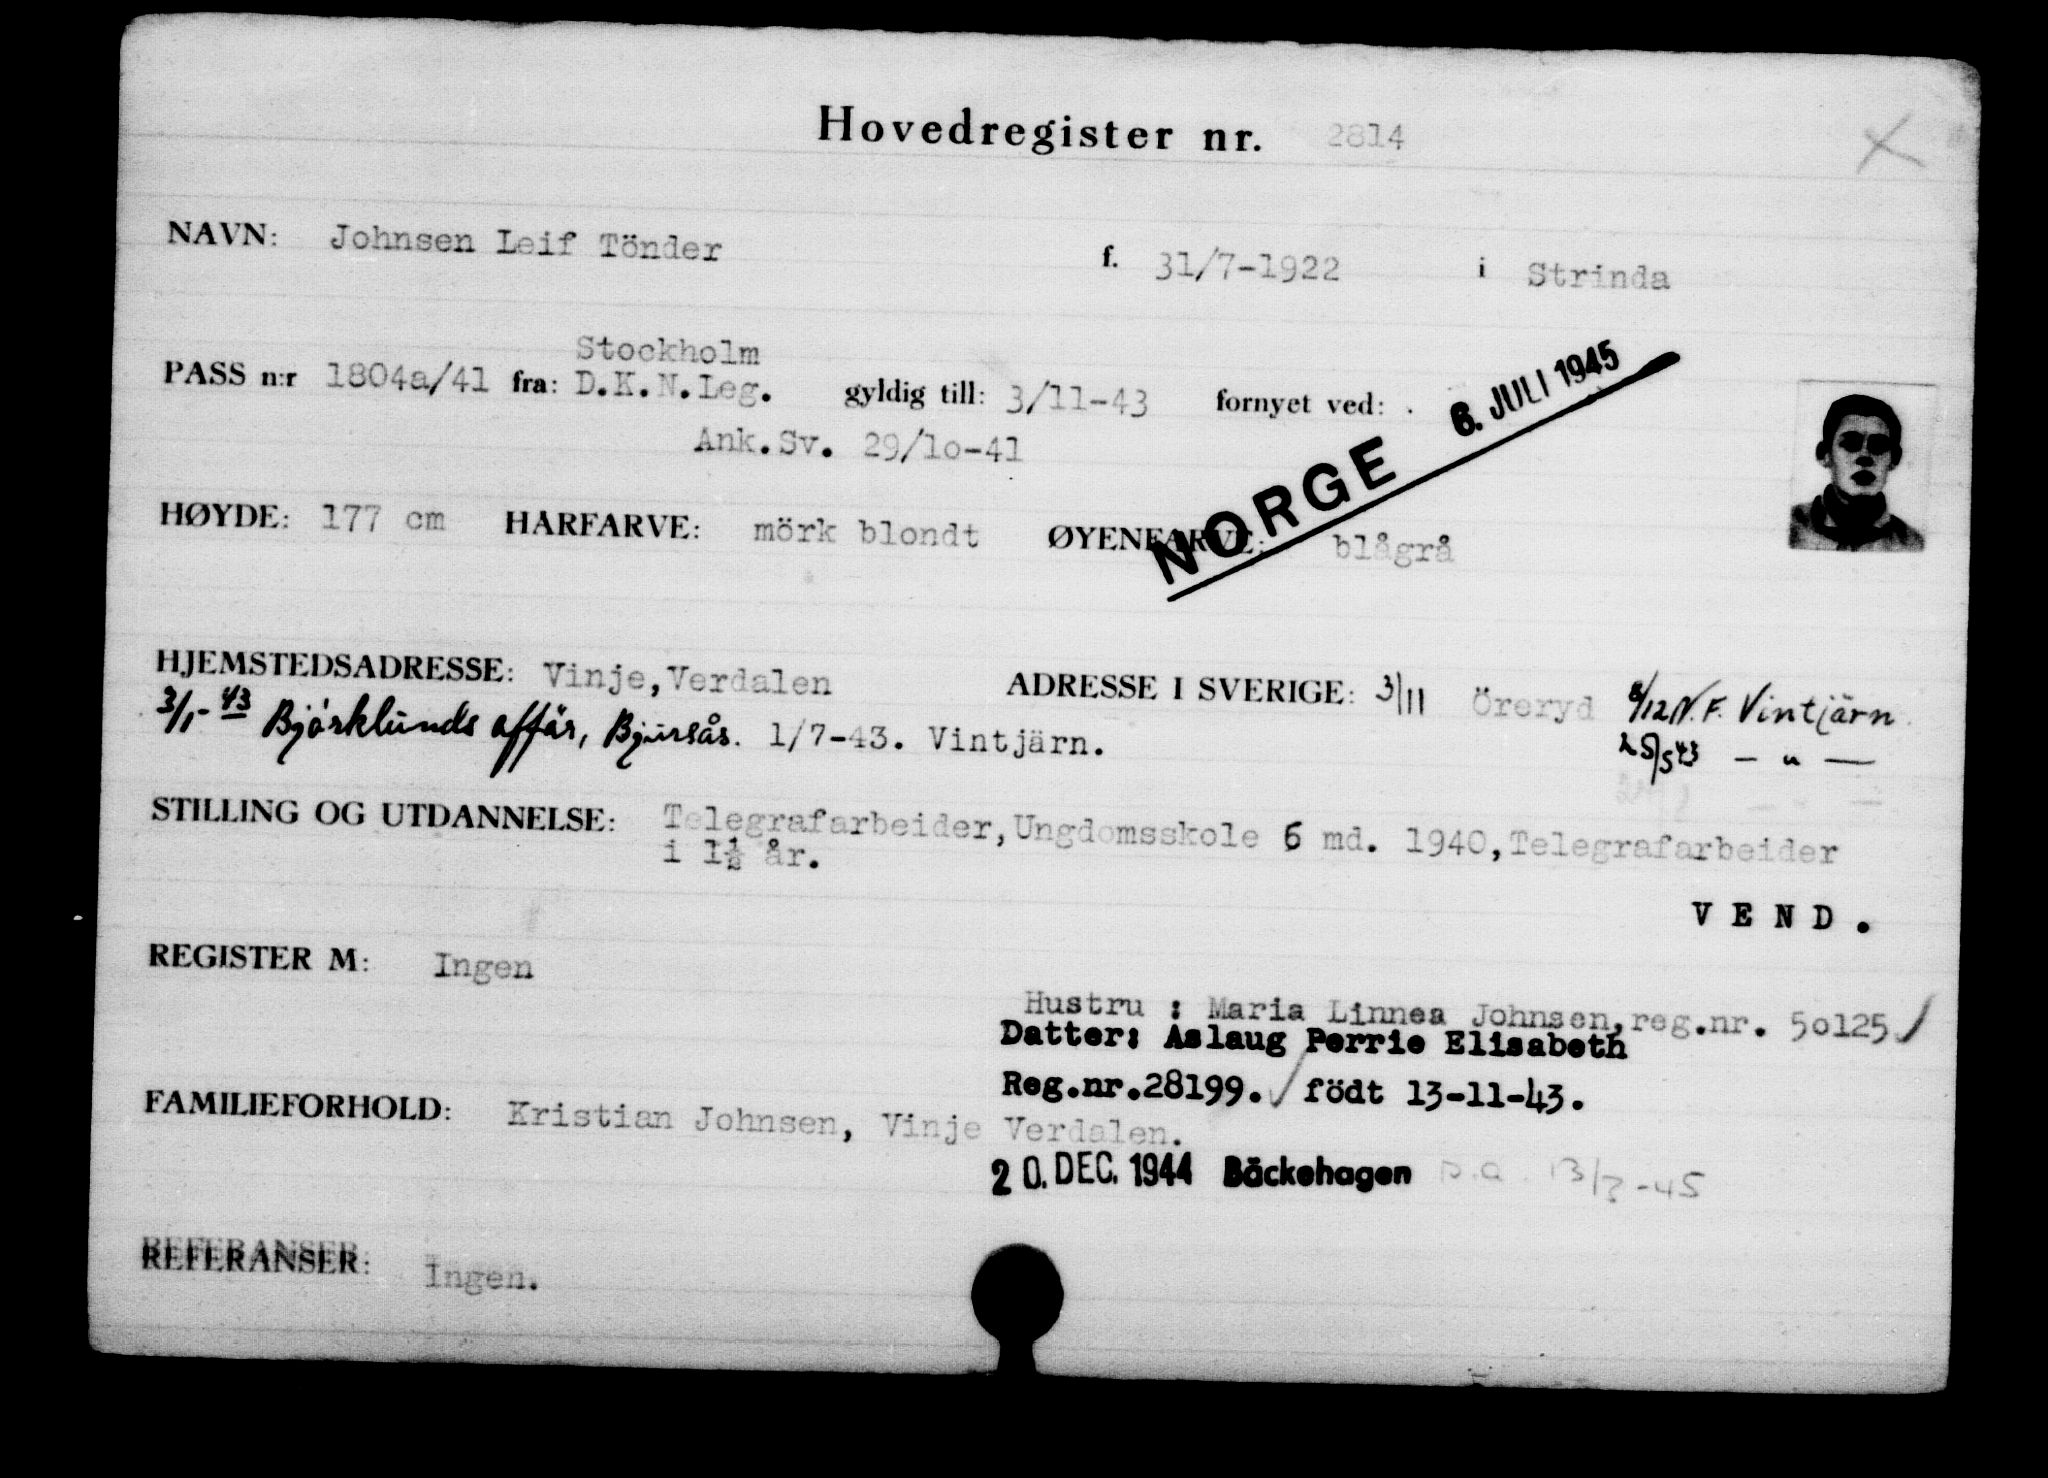 Hovedregister nr. 2814
NAVN: Johnsen Leif Tönder f. 31/7-1922 i Strinda
Stockholm
PASS n:r 1804a/41 fra: D.K.N.Leg. gyldig till: 3/11-43 fornyet ved:
6. JULI 1945
Ank.Sv. 29/1o-41
NORGE
HØYDE: 177 cm HARFARVE: mörk blondt ØYENFARVE: blågrå
HJEMSTEDSADRESSE: Vinje,Verdalen ADRESSE I SVERIGE: 3/11 Öreryd 8/12 N.F. Vintjärn
3/1-43 Björklunds affär, Bjursås. 1/7-43. Vintjärn. 25/5 43 — " —
STILLING OG UTDANNELSE: Telegrafarbeider,Ungdomsskole 6 md. 1940,Telegrafarbeider
i 1½ år.
VEND.
REGISTER M: Ingen
Hustru : Maria Linnea Johnsen,reg.nr. 5o125
Datter: Aslaug Perrie Elisabeth
Reg.nr.28199. födt 13-11-43.
FAMILIEFORHOLD: Kristian Johnsen, Vinje Verdalen.
20. DEC. 1944 Bäckehagen 13/3-45
REFERANSER: Ingen.